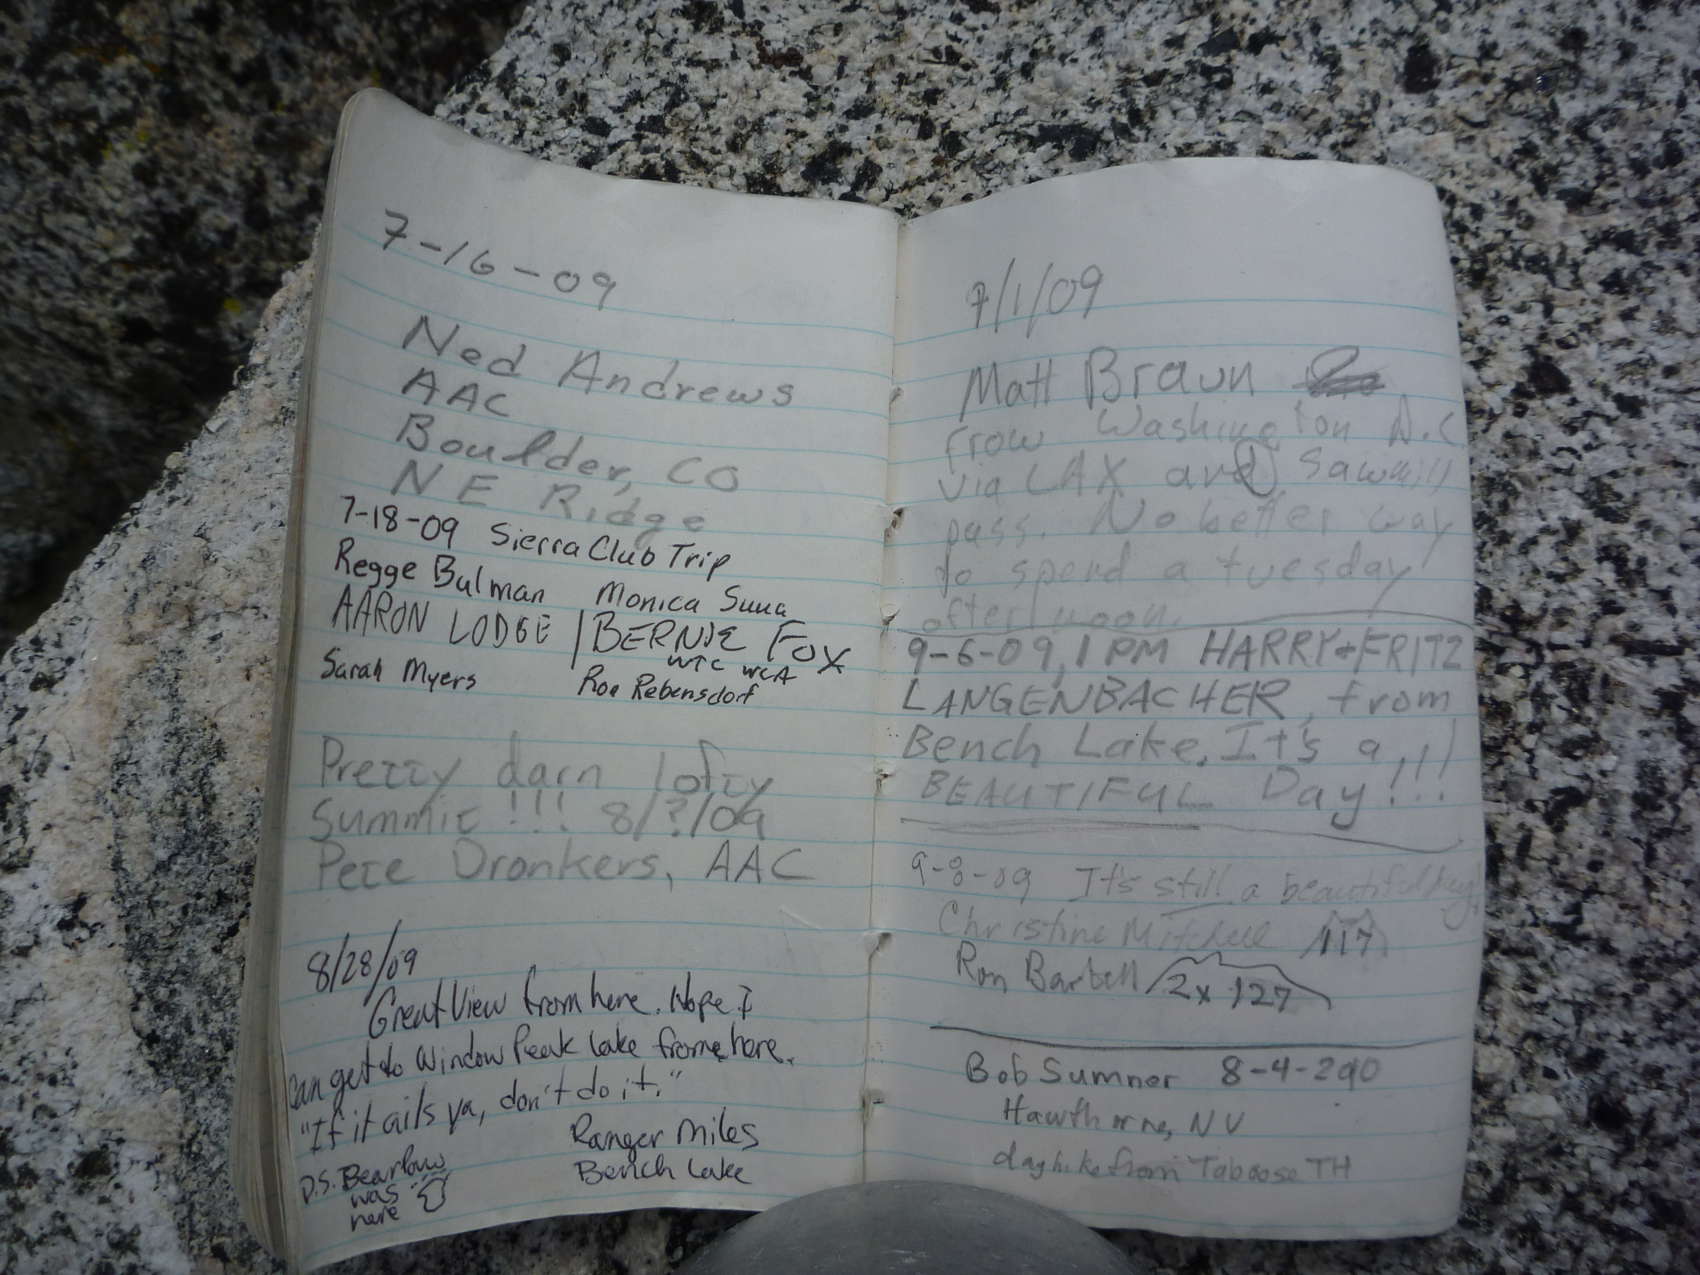 7-16-09
Ned Andrews
AAC
Boulder, CO
NE Ridge
7-18-09 Sierra Club Trip
Regge Bulman Monica Suua
AARON LODGE / BERNIE FOX
WTC WLA
Sarah Myers Ron Rebensdorf
Pretty darn lofty
summit!!! 8/?/09
Pete Dronkers, AAC
8/28/09
Great View from here. Hope I
can get to Window Peak Lake from here.
"If it ails ya, don't do it."
Ranger Miles
Bench Lake
P.S. Bearpaw
was
here
7/1/09
Matt Braun
from Washington D.C
via LAX and Sawmill
pass. No better way
to spend a tuesday
afternoon.
9-6-09, 1 PM HARRY + FRITZ
LANGENBACHER, from
Bench Lake. It's a
BEAUTIFUL Day!!!
9-8-09 It's still a beautiful day!
Christine Mitchell 117
Ron Barbell 2x 127
Bob Sumner 8-4-2010
Hawthorne, NV
dayhike from Taboose TH